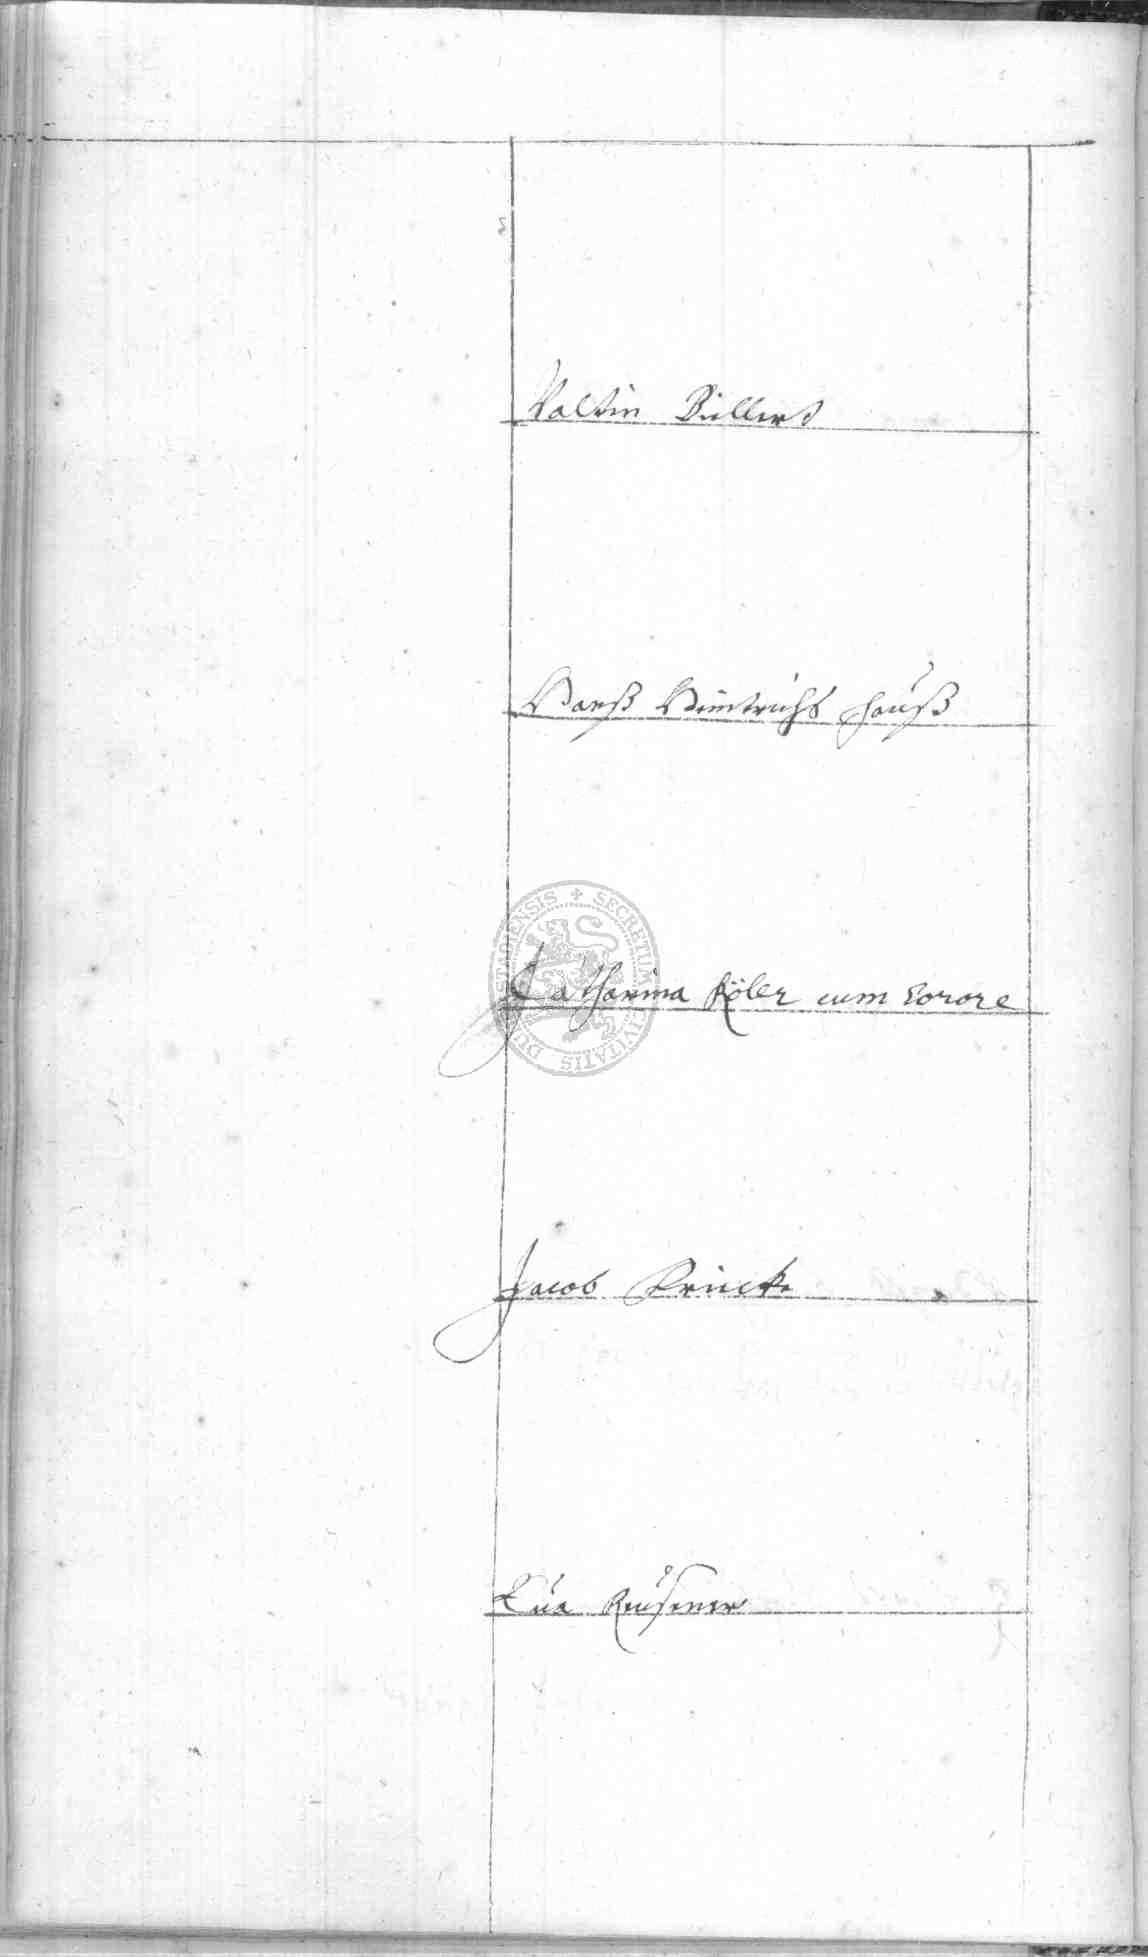 Valtin Billert
Hanß Heintrichs Hauß
Catharina Köler cum Sorore
Jacob Krücke
SECRETUM CIVITATIS DUDERSTADIENSIS